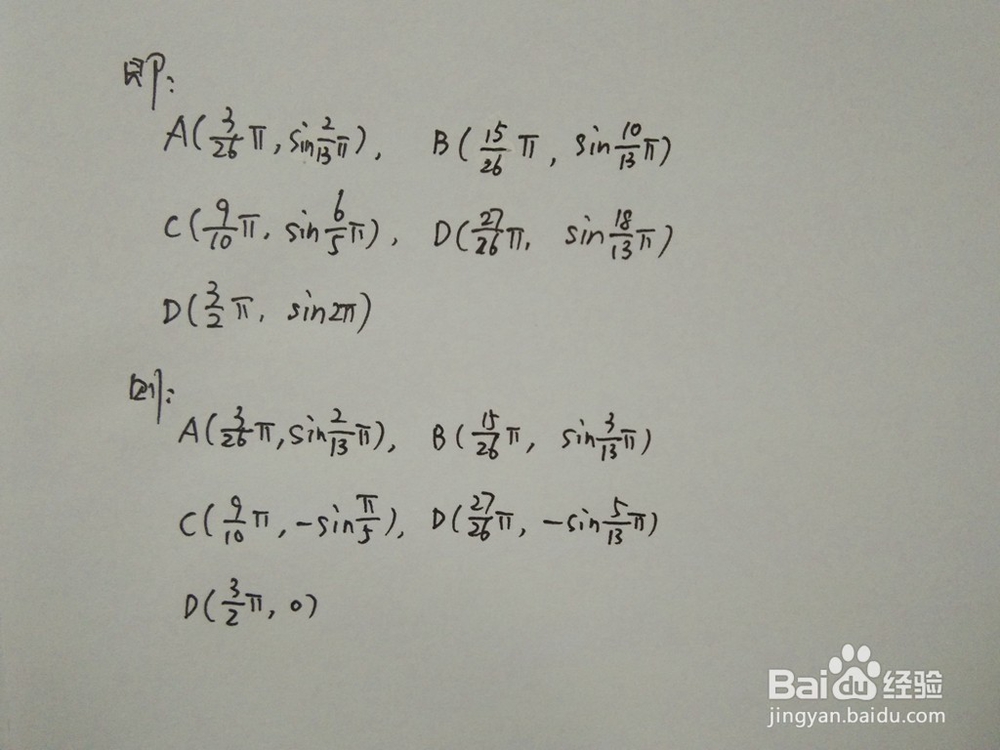 即:
A(3/26 π, sin 2/13 π), B(15/26 π, sin 10/13 π)
C(9/10 π, sin 6/5 π), D(27/26 π, sin 18/13 π)
D(3/2 π, sin2π)
A(3/26 π, sin 2/13 π), B(15/26 π, sin 3/13 π)
C(9/10 π, -sin π/5), D(27/26 π, -sin 5/13 π)
D(3/2 π, 0)
Baidu 经验
jingyan.baidu.com